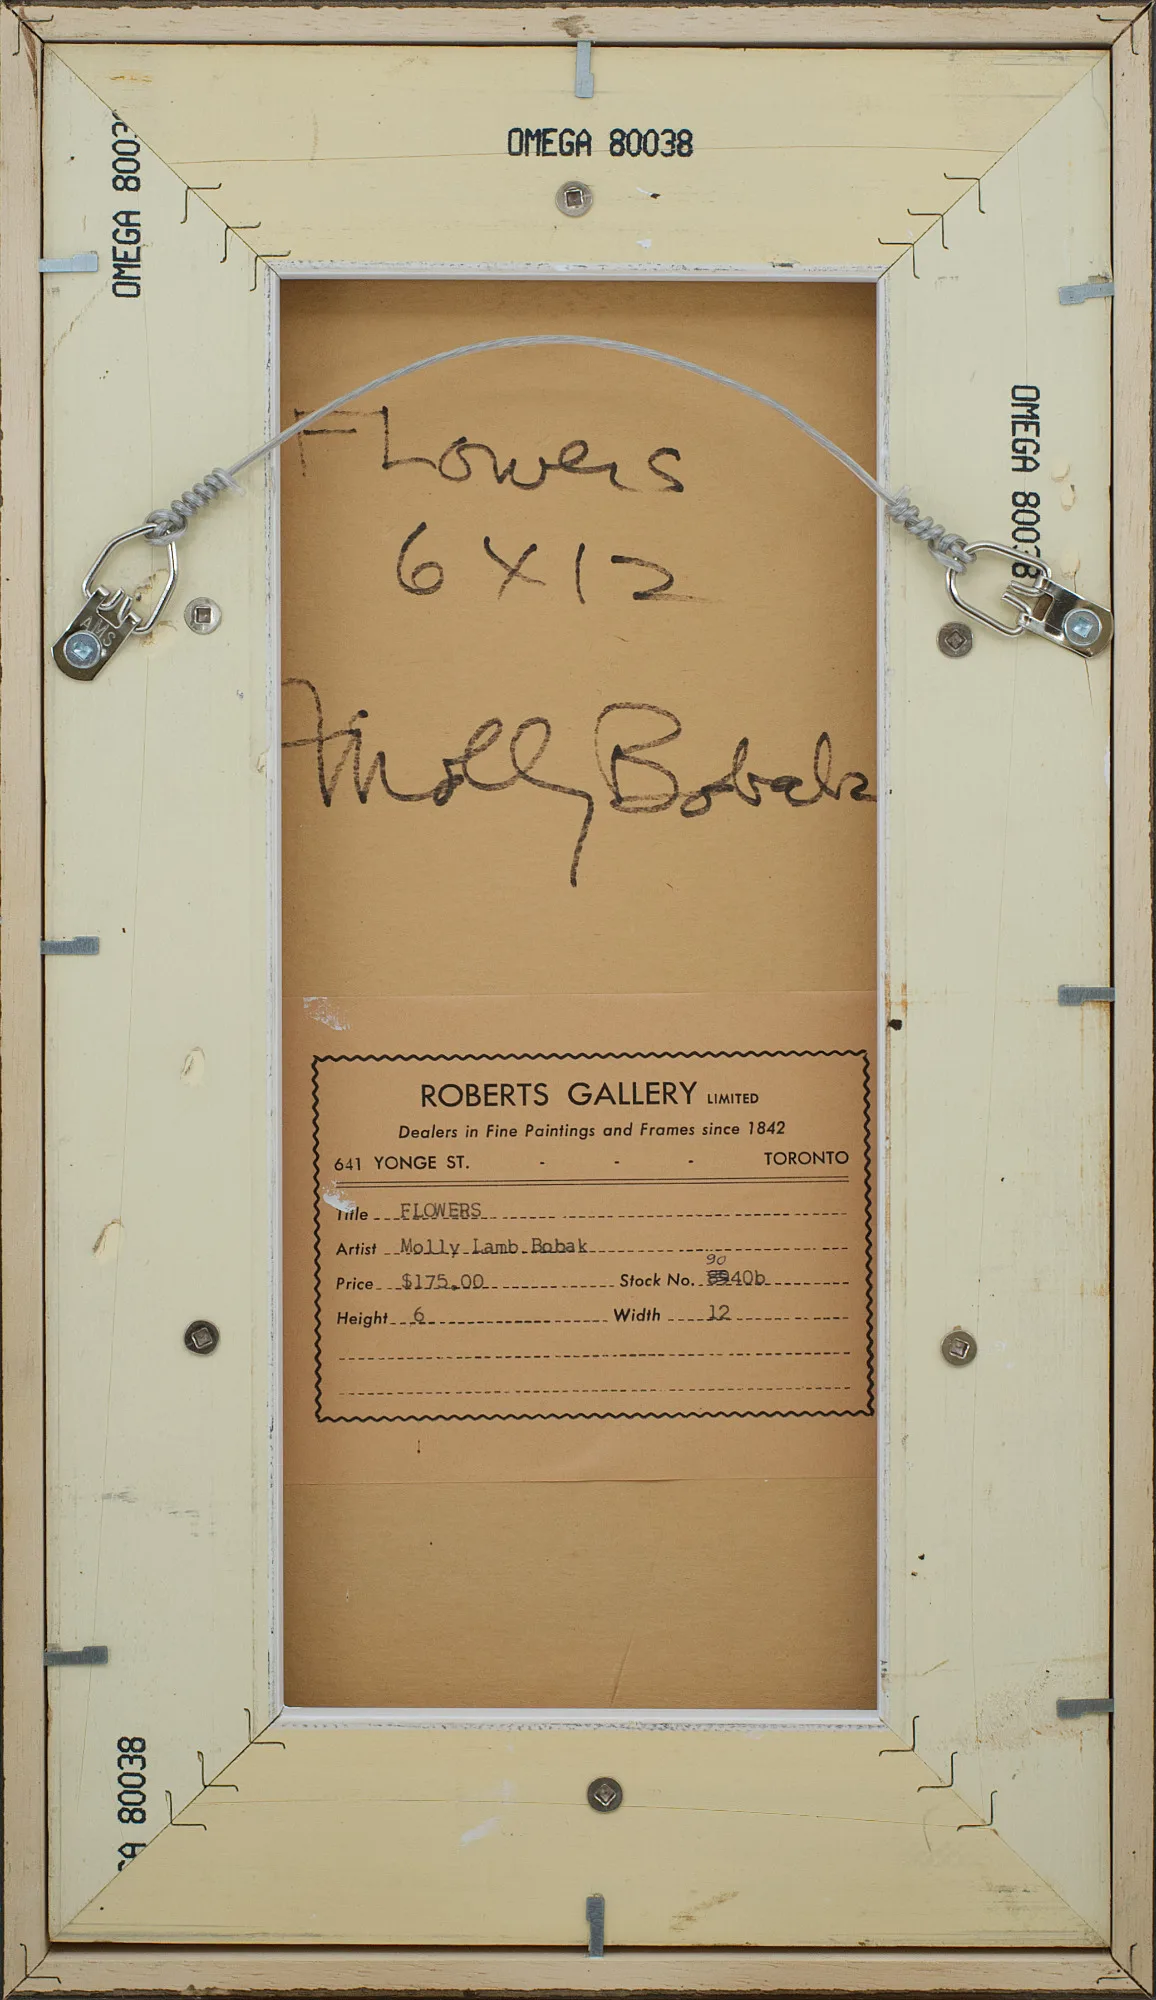 OMEGA 80038
OMEGA 8003
OMEGA 80038
Flowers
6 x 12
Molly Bobak
AMS
ROBERTS GALLERY LIMITED
Dealers in Fine Paintings and Frames since 1842
641 YONGE ST. - - - TORONTO
Title FLOWERS
Artist Molly Lamb Bobak
90
Price $175.00 Stock No. 40b
Height 6 Width 12
GA 80038